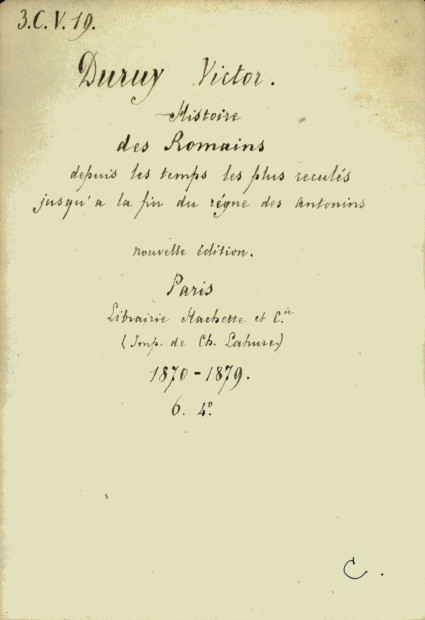 3.C.V.19.
Duruy Victor.
Histoire
des Romains
depuis les temps les plus reculés
jusqu'a la fin du régne des Antonins
nouvelle édition.
Paris
Librairie Hachette et C.ie
(Imp. de Ch. Lahure)
1870-1879.
6. 4º
C.